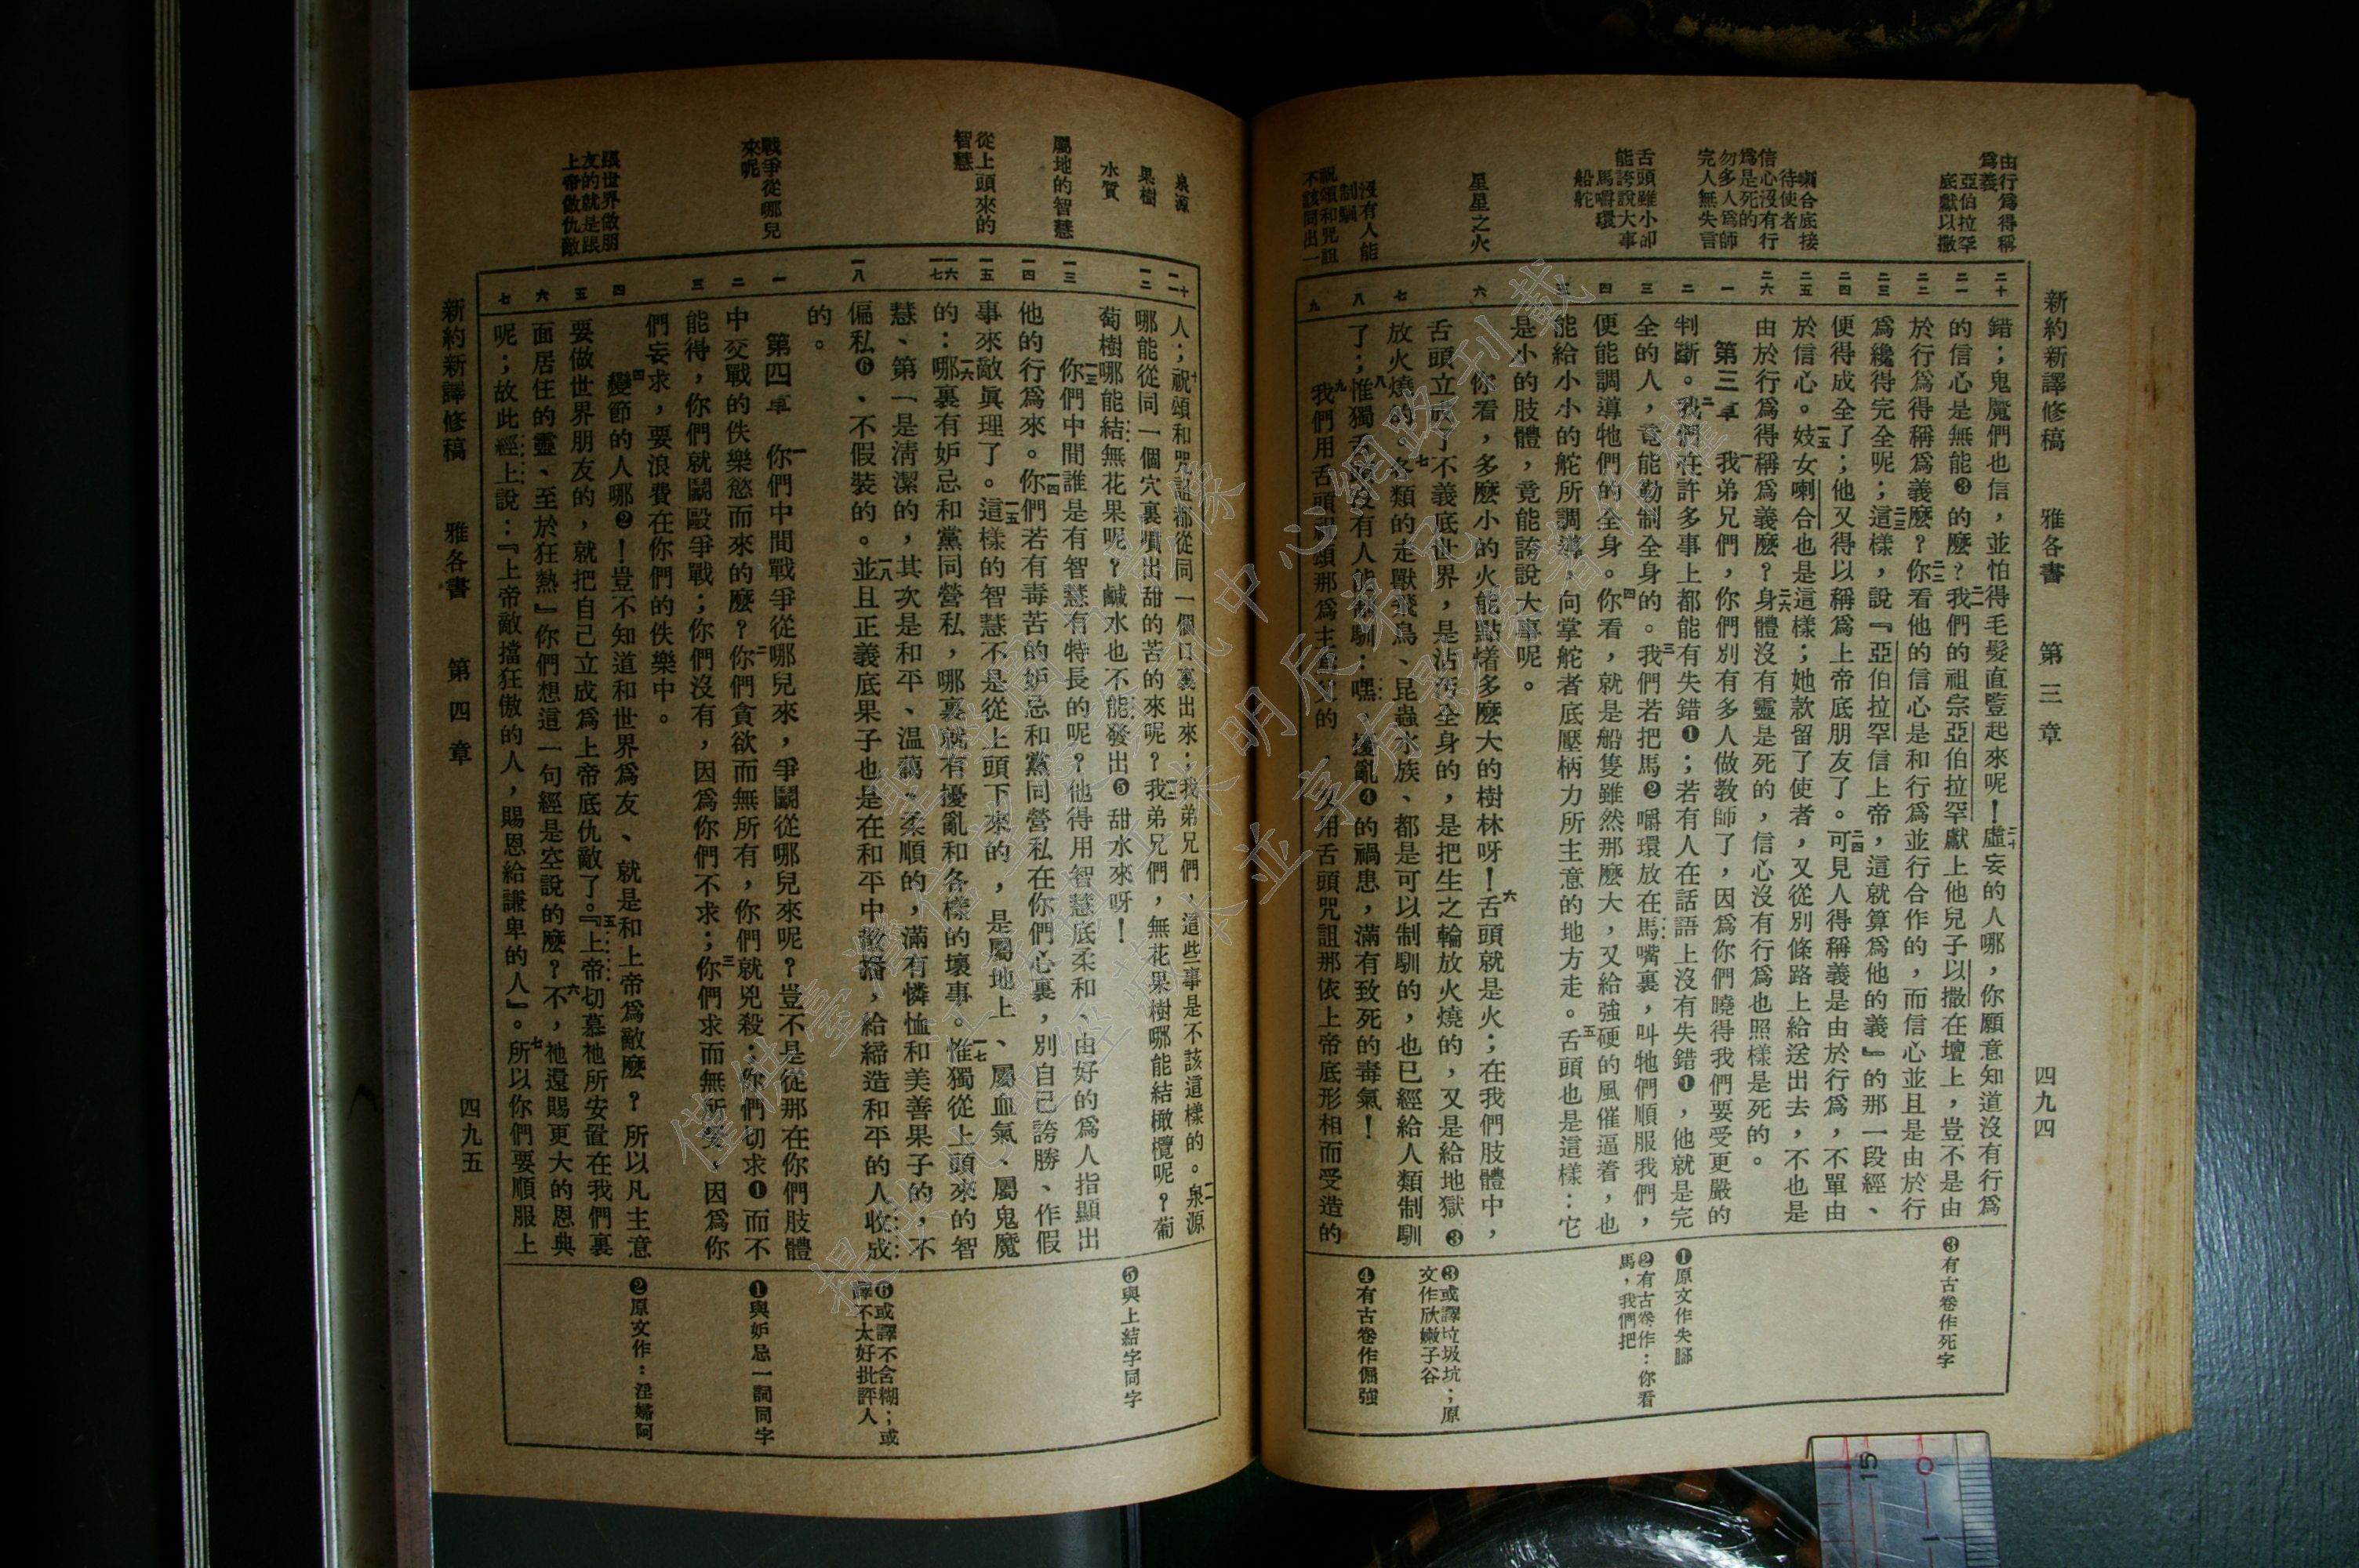 新約新譯修稿　雅各書　第三章　四九四
由行爲得稱
爲義
亞伯拉罕
底獻以撒
喇合底接
待使者
信心沒有行
爲是死的
勿多人爲師
完人無失言
舌頭雖小卻
能誇說大事
馬嚼環
船舵
星星之火
沒有人能
制馴
祝頌和咒詛
不該同出一
二十
二一
二二
二三
二四
二五
二六
一
二
三
四
五
六
七
八
九
錯；鬼魔們也信，並怕得毛髮直豎起來呢！二十虛妄的人哪，你願意知道沒有行爲
的信心是無能❸的麼？二一我們的祖宗亞伯拉罕獻上他兒子以撒在壇上，豈不是由
於行爲得稱爲義麼？二二你看他的信心是和行爲並行合作的，而信心並且是由於行
爲纔得完全呢；二三這樣，說『亞伯拉罕信上帝，這就算爲他的義』的那一段經、
便得成全了；他又得以稱爲上帝底朋友了。二四可見人得稱義是由於行爲，不單由
於信心。二五妓女喇合也是這樣；她款留了使者，又從別條路上給送出去，不也是
由於行爲得稱爲義麼？二六身體沒有靈是死的，信心沒有行爲也照樣是死的。
第三章　一我弟兄們，你們別有多人做教師了，因爲你們曉得我們要受更嚴的
判斷。二我們在許多事上都能有失錯❶；若有人在話語上沒有失錯❶，他就是完
全的人，竟能勒制全身的。三我們若把馬❷嚼環放在馬嘴裏，叫牠們順服我們，
便能調導牠們的全身。四你看，就是船隻雖然那麼大，又給強硬的風催逼着，也
能給小小的舵所調導，向掌舵者底壓柄力所主意的地方走。五舌頭也是這樣：它
是小的肢體，竟能誇說大事呢。
你看，多麼小的火能點燃多麼大的樹林呀！六舌頭就是火；在我們肢體中，
舌頭立成了不義底世界，是沾污全身的，是把生之輪放火燒的，又是給地獄❸
放火燒的。七各類的走獸飛鳥、昆蟲水族、都是可以制馴的，也已經給人類制馴
了；八惟獨舌頭沒有人能制馴；嘿、擾亂❹的禍患，滿有致死的毒氣！
九我們用舌頭祝頌那爲主爲父的，又用舌頭咒詛那依上帝底形相而受造的
❸有古卷作死字
❶原文作失腳
❷有古卷作：你看
馬，我們把
❸或譯垃圾坑；原
文作欣嫩子谷
❹有古卷作倔強
泉源
果樹
水質
屬地的智慧
從上頭來的
智慧
戰爭從哪兒
來呢
跟世界做朋
友的就是跟
上帝做仇敵
十
一一
一二
一三
一四
一五
一六
一七
一八
一
二
三
四
五
六
七
人；十祝頌和咒詛都從同一個口裏出來；我弟兄們，這些事是不該這樣的。一一泉源
哪能從同一個穴裏噴出甜的苦的來呢？一二我弟兄們，無花果樹哪能結橄欖呢？葡
萄樹哪能結無花果呢？鹹水也不能發出❺甜水來呀！
一三你們中間誰是有智慧有特長的呢？他得用智慧底柔和、由好的爲人指顯出
他的行爲來。一四你們若有毒苦的妒忌和黨同營私在你們心裏，別自己誇勝、作假
事來敵眞理了。一五這樣的智慧不是從上頭下來的，是屬地上、屬血氣、屬鬼魔
的：一六哪裏有妒忌和黨同營私，哪裏就有擾亂和各樣的壞事。一七惟獨從上頭來的智
慧、第一是清潔的，其次是和平、溫藹、柔順的，滿有憐恤和美善果子的，不
偏私❻、不假裝的。一八並且正義底果子也是在和平中散播，給締造和平的人收成
的。
第四章　一你們中間戰爭從哪兒來，爭鬭從哪兒來呢？豈不是從那在你們肢體
中交戰的佚樂慾而來的麼？二你們貪欲而無所有，你們就兇殺；你們切求❶而不
能得，你們就鬭毆爭戰；你們沒有，因爲你們不求；三你們求而無所受，因爲你
們妄求，要浪費在你們的佚樂中。
四變節的人哪❷！豈不知道和世界爲友、就是和上帝爲敵麼？所以凡主意
要做世界朋友的，就把自己立成爲上帝底仇敵了。五『上帝切慕祂所安置在我們裏
面居住的靈、至於狂熱』你們想這一句經是空說的麼？六不，祂還賜更大的恩典
呢；故此經上說：『上帝敵擋狂傲的人，賜恩給謙卑的人』。七所以你們要順服上
❺與上結字同字
❻或譯不含糊；或
譯不太好批評人
❶與妒忌一詞同字
❷原文作：淫婦阿
新約新譯修稿　雅各書　第四章　四九五
15
0
1